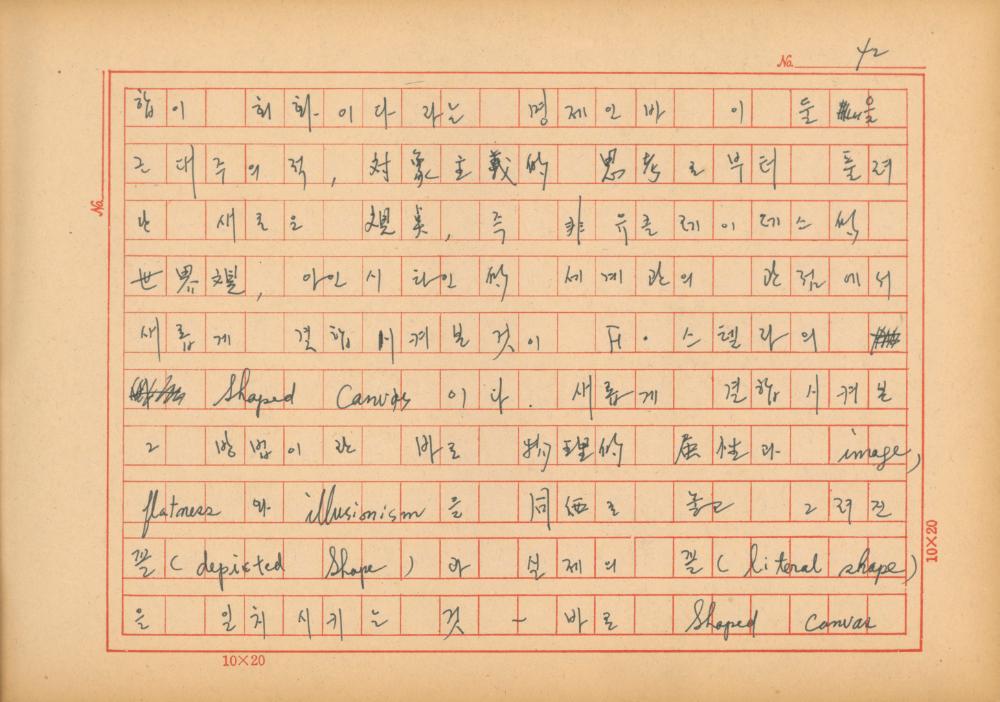 No. 42
합이 회화이다 라는 명제인바 이 둘을
근대주의적, 対象主義的 思考로부터 돌려
난 새로운 視奌, 즉 非유클레이데스的
世界観, 아인시타인的 세계관의 관점에서
새롭게 결합시켜본것이 F·스텔라의
Shaped Canvas 이다. 새롭게 결합시켜본
그 방법이란 바로 物理的 属性과 image,
flatness 와 illusionism 을 同価로 놓고 그려진
꼴(depicted Shape)과 실제의 꼴(literal shape)
을 일치시키는 것 - 바로 Shaped Canvas
No.
10×20
10×20